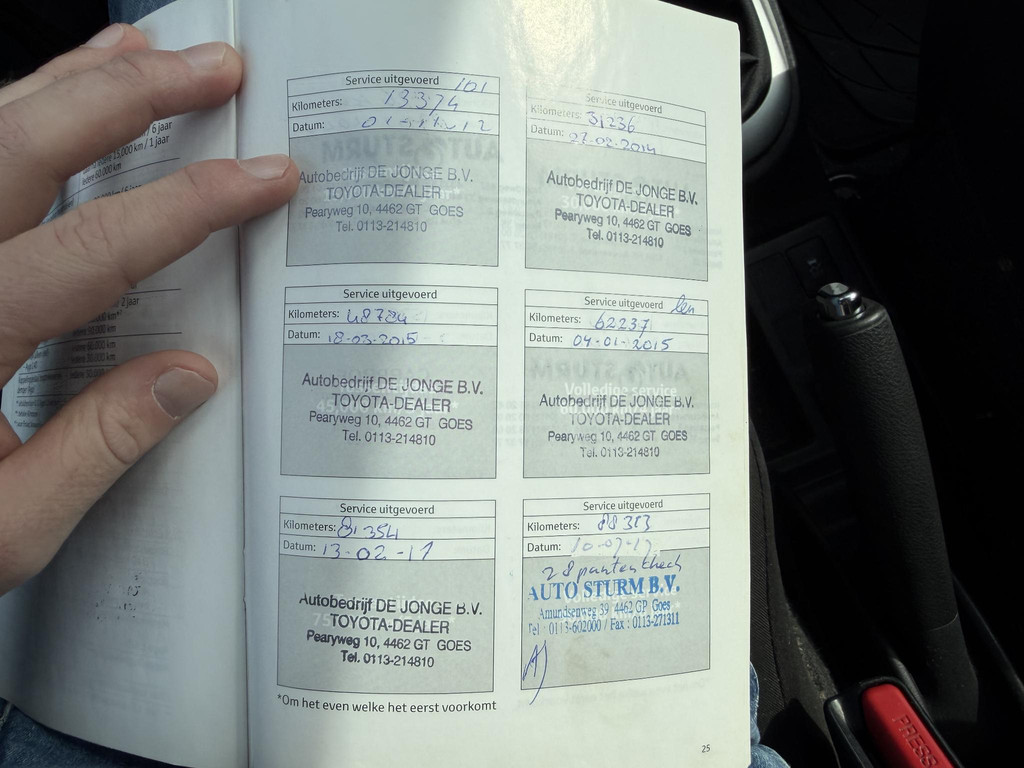 Service uitgevoerd 101
Kilometers: 13374
Datum:
Autobedrijf DE JONGE B.V.
TOYOTA-DEALER
Pearyweg 10, 4462 GT GOES
Tel. 0113-214810
Service uitgevoerd
Kilometers: 31236
Datum: 27-02-2014
Autobedrijf DE JONGE B.V.
TOYOTA-DEALER
Pearyweg 10, 4462 GT GOES
Tel. 0113-214810
Service uitgevoerd
Kilometers: 48784
Datum: 18-03-2015
Autobedrijf DE JONGE B.V.
TOYOTA-DEALER
Pearyweg 10, 4462 GT GOES
Tel. 0113-214810
Service uitgevoerd
Kilometers: 62237
Datum: 04-01-2015
Volledige service
Autobedrijf DE JONGE B.V.
TOYOTA-DEALER
Pearyweg 10, 4462 GT GOES
Tel. 0113-214810
Service uitgevoerd
Kilometers: 81354
Datum: 13-02-17
Autobedrijf DE JONGE B.V.
TOYOTA-DEALER
Pearyweg 10, 4462 GT GOES
Tel. 0113-214810
Service uitgevoerd
Kilometers: 88313
Datum: 10-07-17
28 punten check
AUTO STURM B.V.
Amundsenweg 39 4462 GP Goes
Tel : 0113-602000 / Fax : 0113-271311
*Om het even welke het eerst voorkomt
25
PRESS